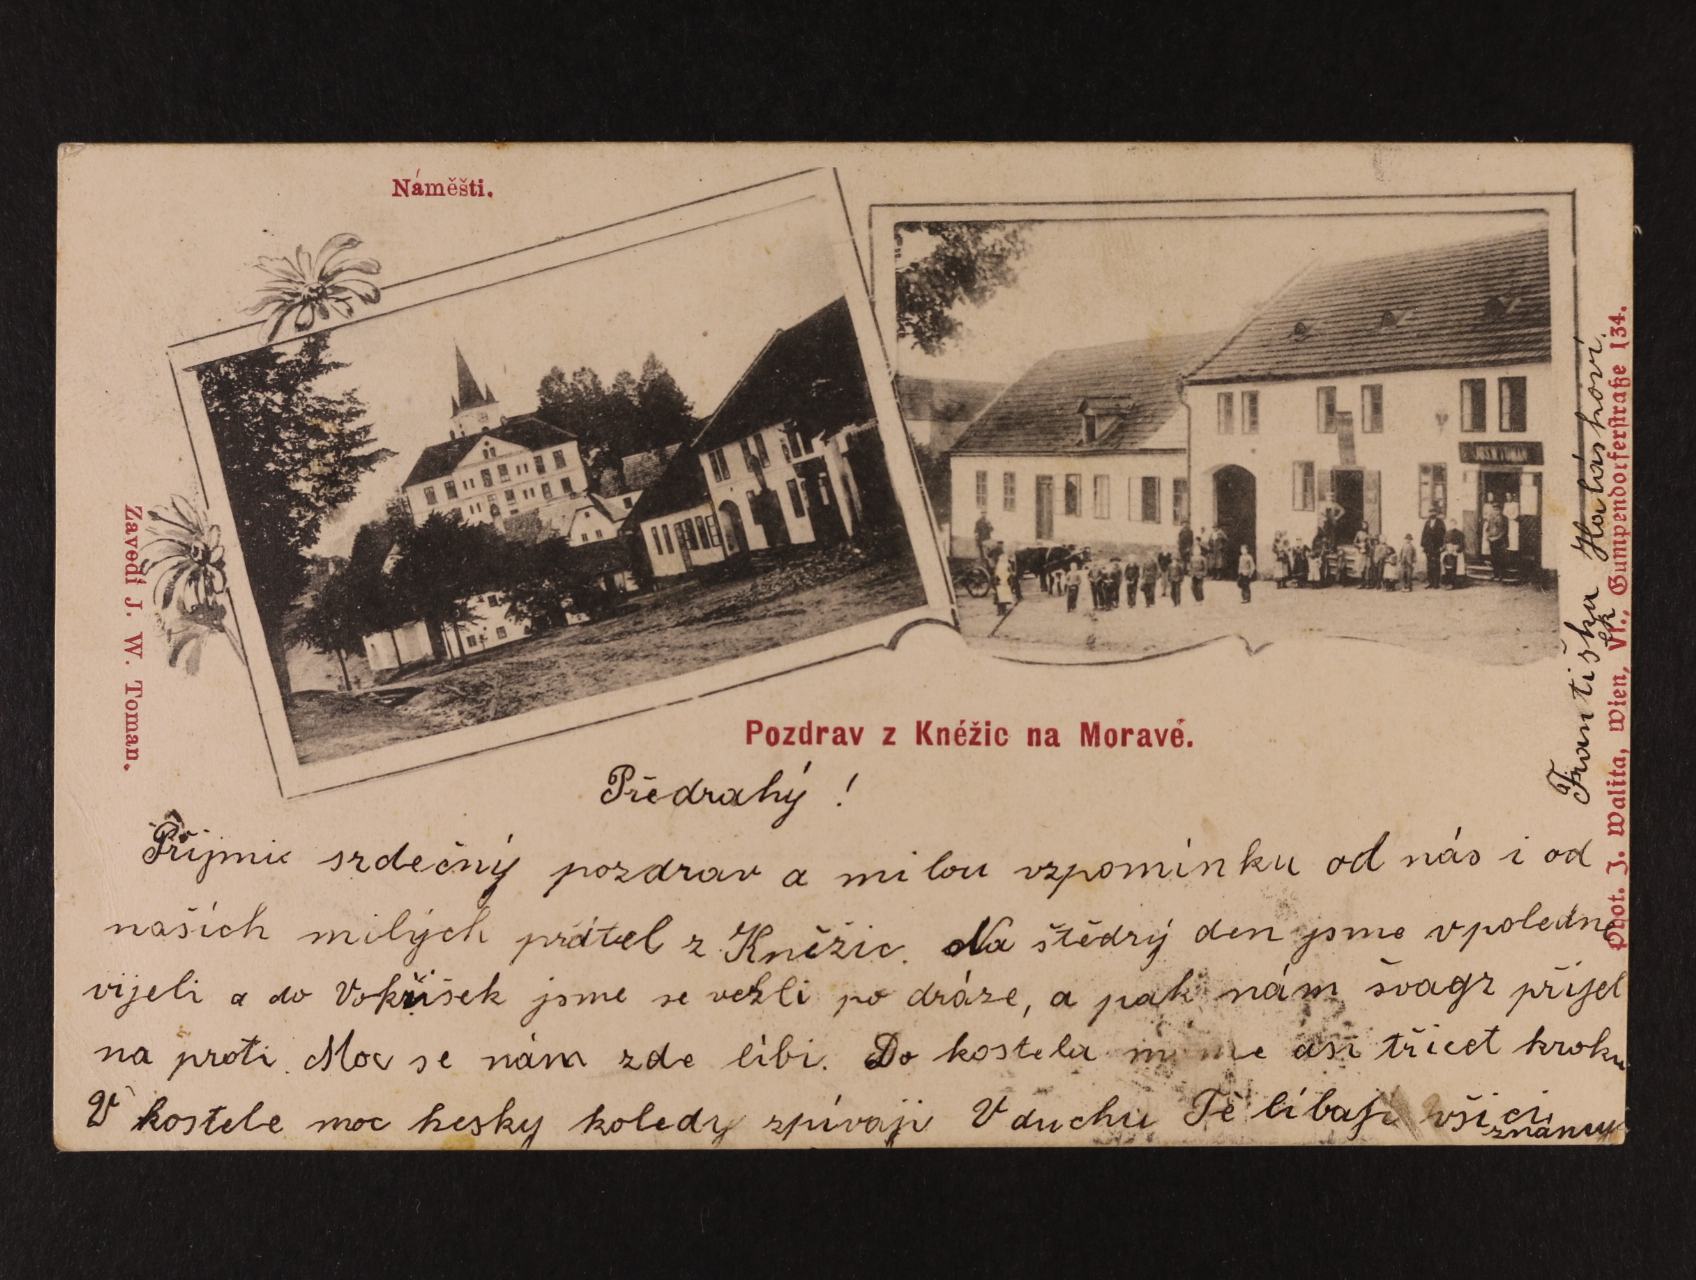 Náměšti.
Zavedl J. W. Toman.
Pozdrav z Knéžic na Moravé.
Phot. J. Walita, Wien, VI., Gumpendorferstraße 134.
Předrahý!
Přijmie srdečný pozdrav a milou vzpomínku od nás i od
našich milých přátel z Kněžic. Na štědrý den jsme vpoledne
vijeli a do Vokříšek jsme se vezli po dráze, a pak nám švagr přijel
na proti. Moc se nám zde líbí. Do kostela máme asi třicet kroku
V kostele moc hesky koledy zpívaji V duchu Tě líbají všici
známy
Františka